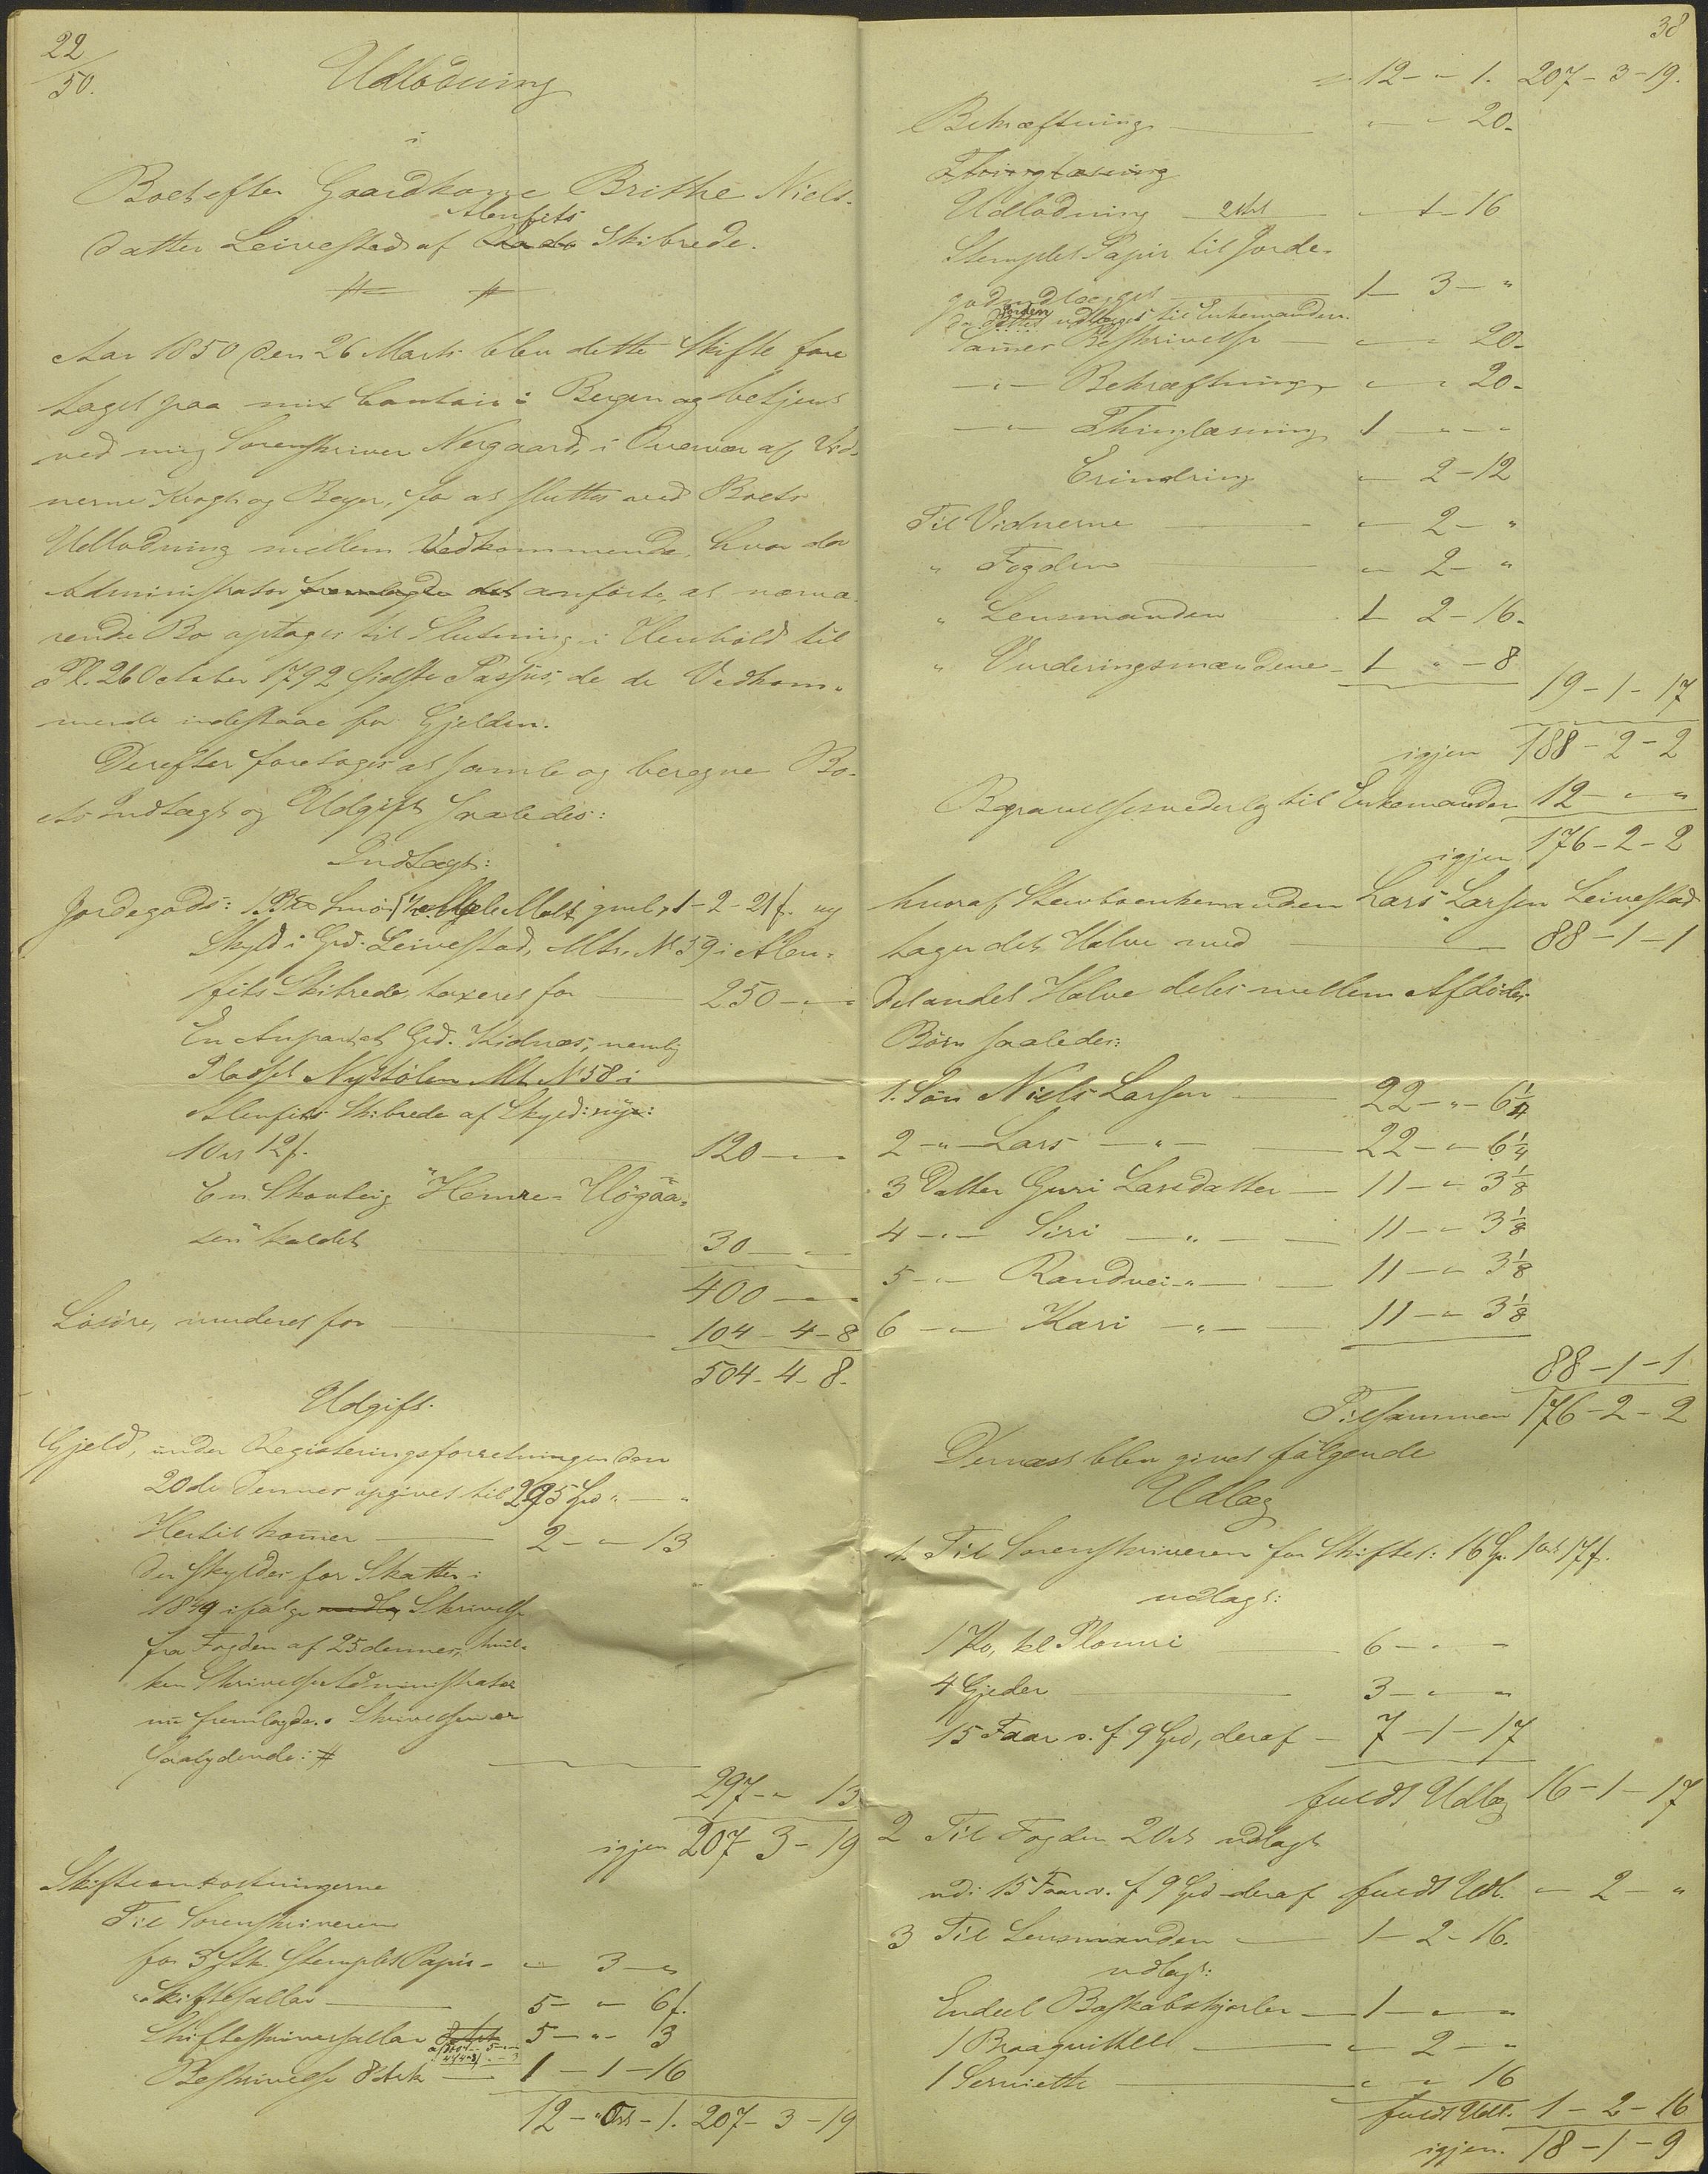 22
50.
Udlodning
i
Boet efter Gaardkone Brithe Niels-
Alenfits
datter Leivestad af Rado Skibrede.
Aar 1850 den 26 Marts blev dette Skifte fore
taget paa mit Contoir i Bergen og betjent
ved mig Sorenskriver Nergaard, i Overvær af Vid-
nerne Krogh og Beyer, for at sluttes ved Boets
Udlodning mellem Vedkommende, hvor da
Administrator fremlagde det anførte, at nærvæ-
rende Bo optages til Slutning i Henhold til
Pl. 26 October 1792 sidste Passus, da de Vedkom-
mende indestaae for Gjelden.
Derefter foretoges at samle og beregne Bo-
ets Indtægt og Udgift saaledes:
Indtægt:
Jordegods: Smør Malt, gml, 1-2-21 f. ny
Skyld i Grd. Leivestad, Mtr. N 59 i Alen-
fits Skibrede taxeret for 250 - " - "
En Anpart af Grd. Kidnæs, nemlig
Pladset Nystølen Mt. N 58 i
Alenfits Skibrede af Skyld: nye:
1 Ort 12 f. 120 - " - "
En Skovteig "Hemre-Høgaa-
sen" kaldet 30 - " - "
400 - " - "
Løsøre, vurderet for 104 - 4 - 8
504 - 4 - 8.
Udgift.
Gjeld, under Registeringsforretningen den
20de Dennes opgivet til 295 Spd " - "
Hertil kommer 2 - " - 13
der skyldes for Skatter i
1849 ifølge Skrivelse
fra Fogden af 25 dennes, hvil-
ken Skrivelse Administrator
nu fremlagde. Skrivelsen er
saalydende: #
297 - " 13
igjen 207 - 3 - 19
Skifteomkostningerne
Til Sorenskriveren
for 3 Stk. Stemplet Papir - " 3 - "
Skiftesallar 5 - " 6 f.
Skifteskriversallar 5 - " - 13
Beskrivelse 8 Ark 1 - 1 - 16
12 - " Ort - 1. 207 - 3 - 19
38
12 - " 1. 207 - 3 - 19.
Bekræftning " " 20.
Thinglæsning
Udlodning 2 Ark " 1 - 16
Stemplet Papir til Jorde-
godsudlægget 1 - 3 - "
Jorden
da dettes udlægges til Enkemanden.
Sammes Beskrivelse " " 20.
- " - Bekræftning " " 20.
- " - Thinglæsning 1 - " - "
Erindring " 2 - 12
Til Vidnerne " 2 - "
" Fogden " 2 - "
" Lensmanden 1 - 2 - 16.
" Vurderingsmændene - 1 " - 8
19 - 1 - 17
igjen 188 - 2 - 2
Begravelsesvederlag til Enkemanden 12 - " - "
igjen 176 - 2 - 2
hvoraf Stervboenkemanden Lars Larsen Leivestad
tager det Halve med 88 - 1 - 1
Det andet Halve deles mellem Afdødes
Børn saaledes:
1. Søn Niels Larsen 22 - " - 6 1/4
2 - " - Lars - " - 22 - " - 6 1/4
3 Datter Guri Larsdatter - 11 - " 3 1/8
4 - " - Siri - " - 11 - " 3 1/8
5 - " - Randvei - " - 11 - " 3 1/8
6 - " - Kari - " - 11 - " 3 1/8
88 - 1 - 1
Tilsammen 176 - 2 - 2
Dernæst blev givet følgende
Udlæg
1. Til Sorenskriveren for Skiftet: 16 Sp. 1 Ort 17 f.
udlagt:
1 Ko, kl Plomri 6 - " -
4 Gjeder 3 - " - "
15 Faar v. f. 9 Spd, deraf - 7 - 1 - 17
fuldt Udlæg 16 - 1 - 17
2 Til Fogden 2 Ort udlagt
udi 15 Faar v. f 9 Spd deraf fuldt Udl. " 2 - "
3 Til Lensmanden 1 - 2 - 16.
udlagt:
Endeel Boskabskjørler - 1 - " - "
1 Braagvittell " 2 - "
1 Serviette " " 16
fuldt Udl. 1 - 2 - 16
igjen. 18 - 1 - 9